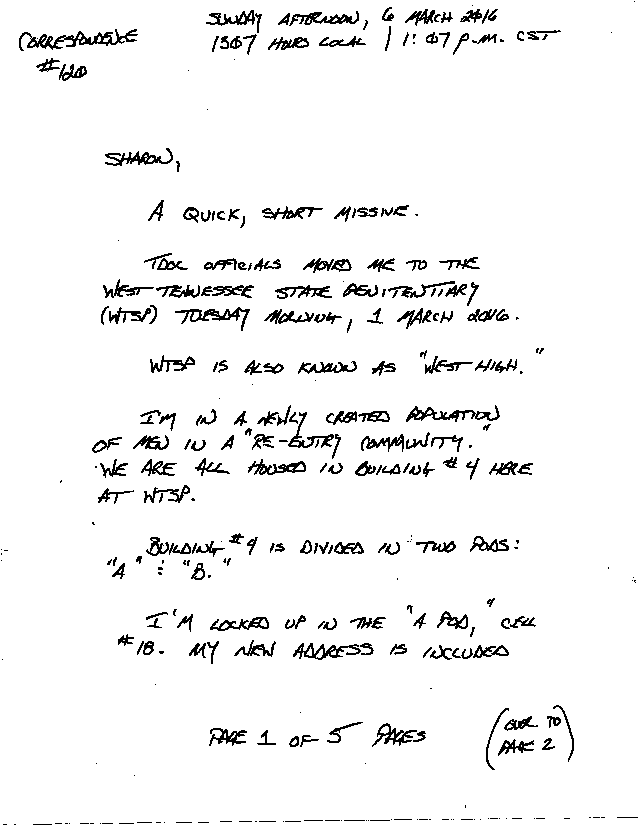 SUNDAY AFTERNOON, 6 MARCH 2016
CORRESPONDENCE
#120
1307 HOURS LOCAL | 1:07 P.M. CST
SHARON,
A QUICK, SHORT MISSIVE.
TDOC OFFICIALS MOVED ME TO THE
WEST TENNESSEE STATE PENITENTIARY
(WTSP) TUESDAY MORNING, 1 MARCH 2016.
WTSP IS ALSO KNOWN AS "WEST HIGH."
I'M IN A NEWLY CREATED POPULATION
OF MEN IN A "RE-ENTRY COMMUNITY."
WE ARE ALL HOUSED IN BUILDING #4 HERE
AT WTSP.
BUILDING #4 IS DIVIDED IN TWO PODS:
"A" : "B."
I'M LOCKED UP IN THE "A POD," CELL
#18. MY NEW ADDRESS IS INCLUDED
PAGE 1 OF 5 PAGES
(OVER TO
PAGE 2)